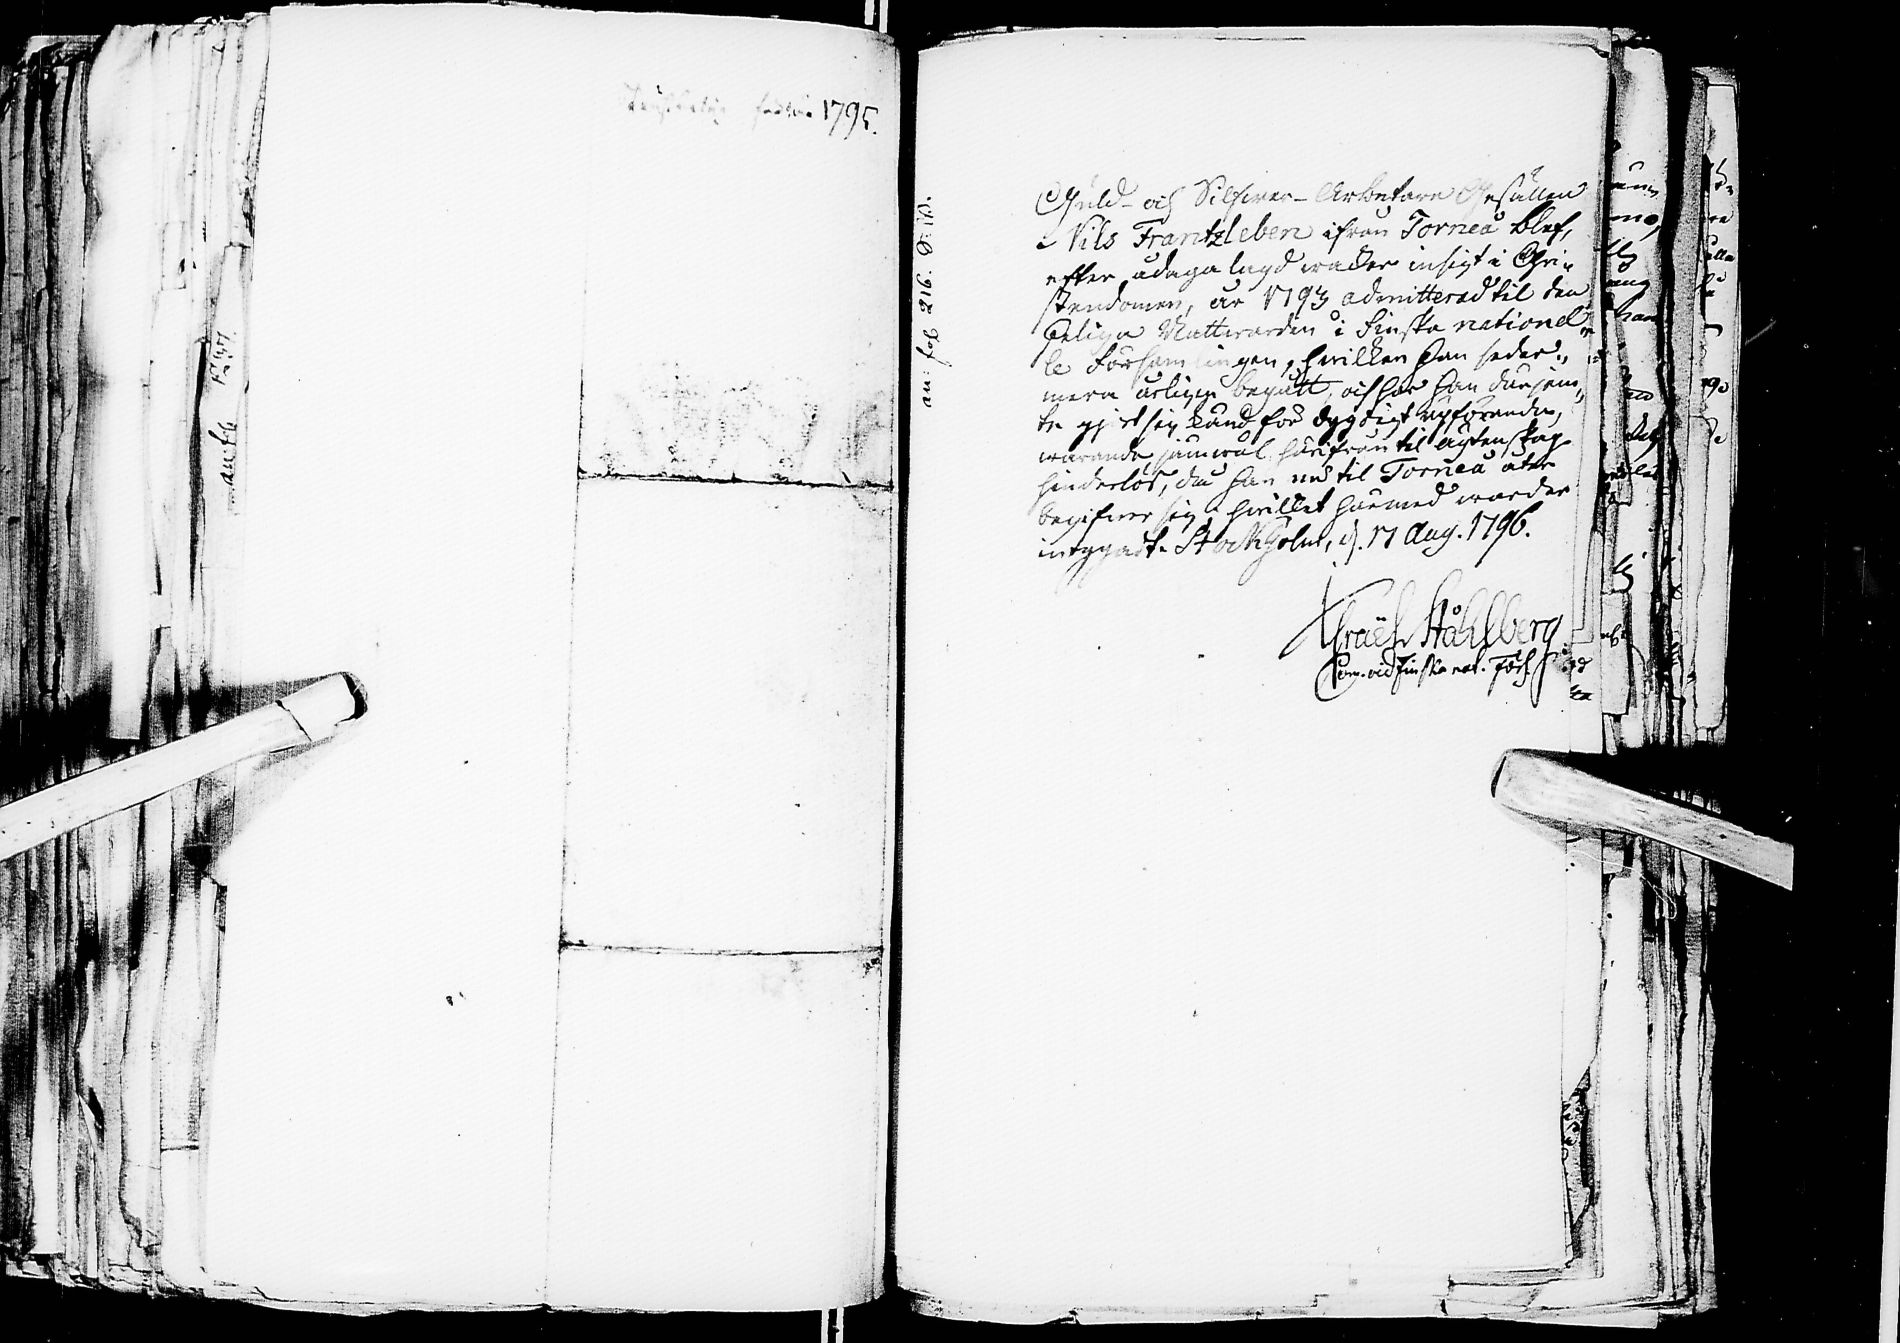 1795.
an: fol 216. S: D.
Guld- och Silfwer-Arbetare Gesällen
Nils Frantzleben ifrån Torneå blef,
efter ådaga lagd wacker insigt i Chri-
stendomen, år 1793 admitterad til den
Heliga Nattwarden i Finska nationel-
le Församlingen, hwilken han seder-
mera årligen begått, och har han därjem-
te gjort sig känd för dygdigt upförande,
warande jämwäl härifrån til ägtenskap
hinderlös, då han nu til Torneå åter
begifwer sig; hwilket härmed warder
intygadt. Stockholm, d. 17 Aug. 1796.
Israël Ståhlberg
Com. vid Finska nat. Förs.